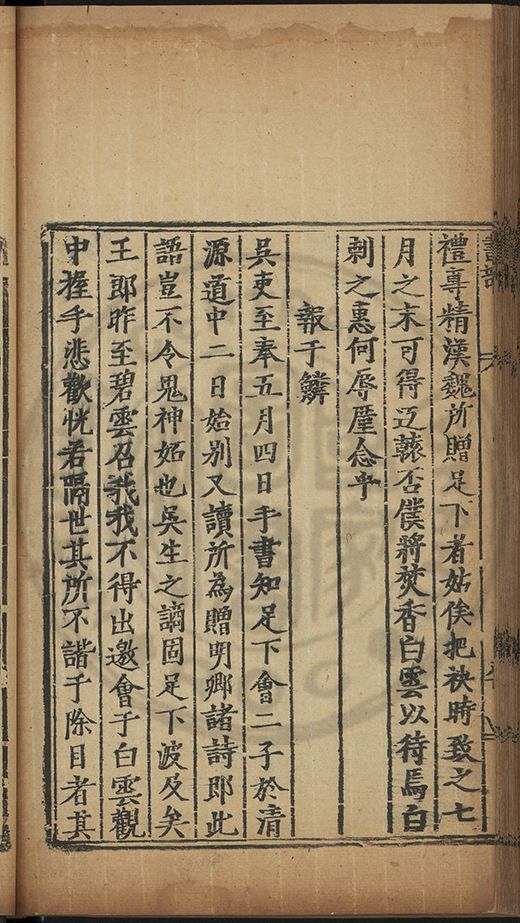 禮專精漢魏所贈足下者姑俟把袂時致之七
月之末可得迈轅否僕將焚香白雲以待焉白
剌之惠何辱厪念乎
報于鱗
吳吏至奉五月四日手書知足下會二子於清
源道中二日始别又讀所為贈明卿諸詩即此
語豈不令鬼神妬也吳生之謫固足下波及矣
王郎昨至碧雲召我我不得出邀會于白雲觀
中握手悲歡恍若隔世其所不諧于除目者其